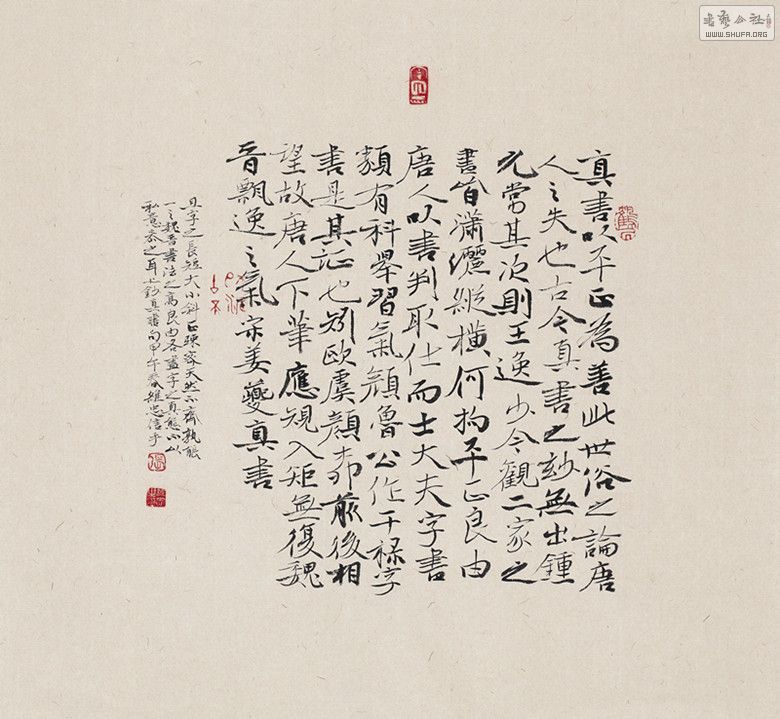 真書以平正為善此世俗之論唐
人之失也古今真書之妙無出鍾
元常其次則王逸少今觀二家之
書皆瀟灑縱橫何拘平正良由
唐人以書判取仕而士大夫字書
類有科舉習氣顏魯公作干祿字
書是其証也矧歐虞顏柳前後相
望故唐人下筆應規入矩無復魏
晉飄逸之氣宋姜夔真書
且字之長短大小斜正疎密天然不齊孰能
一之魏晉書法之高良由各盡字之真態不以
私意參之耳 鈔真書句甲午春維忠信手
書艺公社
WWW.SHUFA.ORG